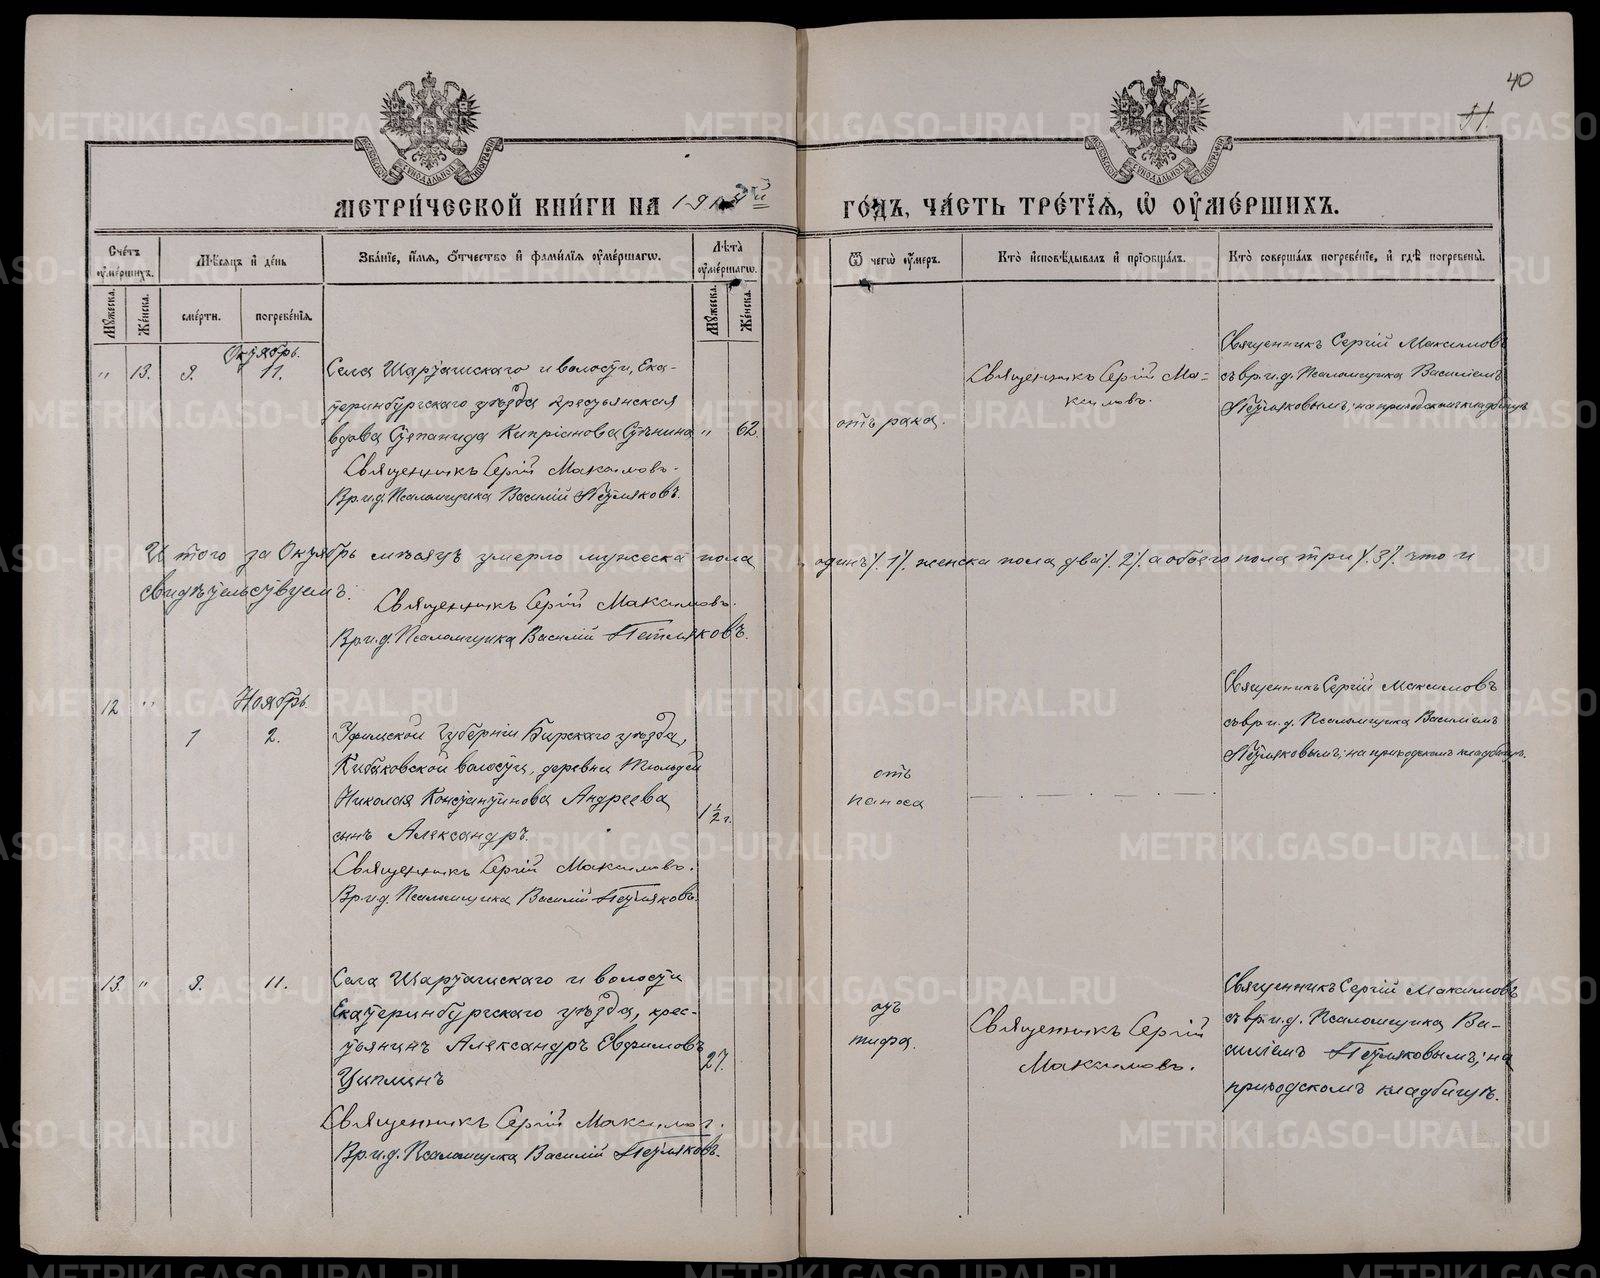 40
11.
МЕТРИ́ЧЕСКОЙ КНИ́ГИ НА 19
ГО́ДЪ, ЧА́СТЬ ТРЕ́ТІѦ, Ѿ ОУ҆МЕ́РШИХЪ.
Сче́тъ оу҆ме́ршихъ.
Мѣ́сяцъ и҆ де́нь
Зва́нїе, и҆́мѧ, ѻ҆́тчество и҆ фамі́лїѧ оу҆ме́ршагѡ.
Лѣ́та оу҆ме́ршагѡ.
Ѿ чегѡ̀ оу҆́меръ.
Кто̀ и҆сповѣ́дывалъ и҆ прїѡбща́лъ.
Кто̀ соверша́лъ погребе́нїе, и҆ гдѣ̀ погребены̀.
Мꙋ́жеска.
Же́нска.
сме́рти.
погребе́нїѧ.
Мꙋ́жеска.
Же́нска.
Октябрь.
" 13. 9. 11.
Села Шарташскаго и волости, Ека-
теринбургскаго уѣзда крестьянская
вдова Степанида Кипріанова Стѣнина " 62.
Священникъ Сергій Максимовъ.
Вр.и.д. Псаломщика Василій Петляковъ.
отъ рака.
Священникъ Сергій Ма-
ксимовъ.
Священникъ Сергій Максимовъ
съ вр.и.д. Псаломщика Василіемъ
Петляковымъ; на приходскомъ кладбищѣ
И того за Октябрь мѣсяцъ умерло мужеска пола одинъ /. 1 /. женска пола два /. 2 /. а обоего пола три /. 3 /. что и
свидѣтельствуемъ:
Священникъ Сергій Максимовъ.
Вр.и.д. Псаломщика Василій Петляковъ.
Ноябрь.
12 " 1 2.
Уфимской губерніи Бирскаго уѣзда,
волости, деревни
Николая Константинова Андреева
сынъ Александръ.
1 1/2 г.
Священникъ Сергій Максимовъ.
Вр.и.д. Псаломщика Василій Петляковъ.
отъ
поноса
Священникъ Сергій Максимовъ
съ вр.и.д. Псаломщика Василіемъ
Петляковымъ; на приходскомъ кладбищѣ.
13. " 9. 11.
Села Шарташскаго и волости
Екатеринбургскаго уѣзда, крес-
тьянинъ Александръ Евфимовъ
Циплинъ
27.
Священникъ Сергій Максимов.
Вр.и.д. Псаломщика Василій Петляковъ.
отъ
тифа.
Священникъ Сергій
Максимовъ.
Священникъ Сергій Максимовъ
съ вр.и.д. Псаломщика Ва-
силіемъ Петляковымъ; на
приходскомъ кладбищѣ.
METRIKI.GASO-URAL.RU